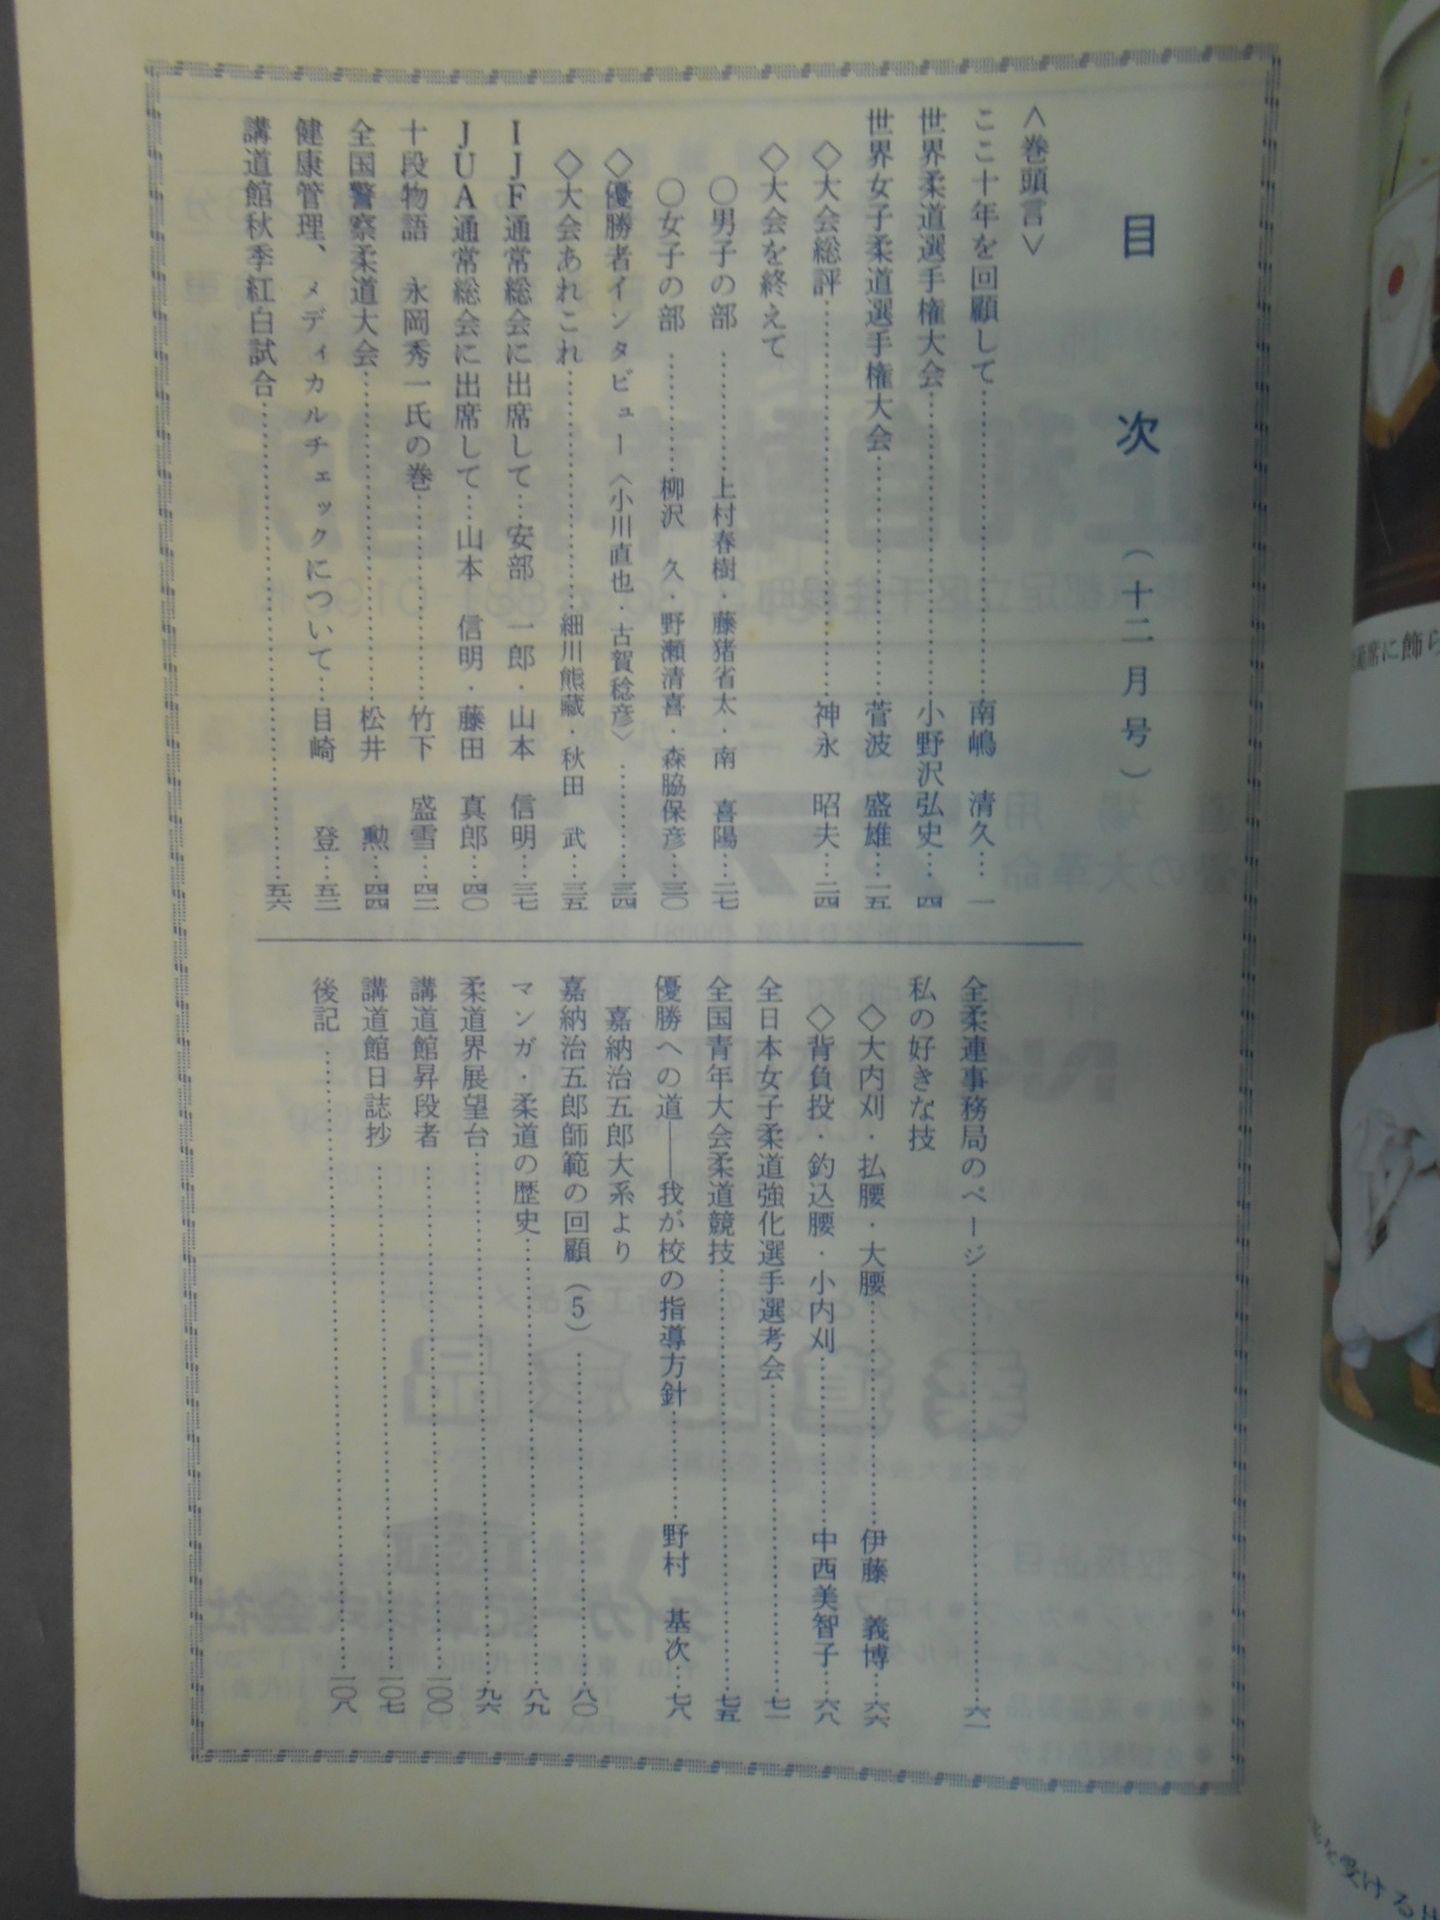 目次（十二月号）
＜巻頭言＞
ここ十年を回顧して…………南嶋　清久…一
世界柔道選手権大会…………小野沢弘史…四
世界女子柔道選手権大会…………菅波　盛雄…一五
◇大会総評…………神永　昭夫…二四
◇大会を終えて
○男子の部…………上村春樹・藤猪省太・南　喜陽…二七
○女子の部…………柳沢　久・野瀬清喜・森脇保彦…三〇
◇優勝者インタビュー〈小川直也・古賀稔彦〉…………三四
◇大会あれこれ…………細川熊蔵・秋田　武…三五
ＩＪＦ通常総会に出席して…安部　一郎・山本　信明…三七
ＪＵＡ通常総会に出席して…山本　信明・藤田　真郎…四〇
十段物語　永岡秀一氏の巻…………竹下　盛雪…四二
全国警察柔道大会…………松井　勲…四四
健康管理、メディカルチェックについて…目崎　登…五二
講道館秋季紅白試合…………五六
全柔連事務局のページ…………六一
私の好きな技
◇大内刈・払腰・大腰…………伊藤　義博…六六
◇背負投・釣込腰・小内刈…………中西美智子…六八
全日本女子柔道強化選手選考会…………七一
全国青年大会柔道競技…………七五
優勝への道――我が校の指導方針…………野村　基次…七八
嘉納治五郎大系より
嘉納治五郎師範の回顧（5）…………八〇
マンガ・柔道の歴史…………八九
柔道界展望台…………九六
講道館昇段者…………一〇〇
講道館日誌抄…………一〇七
後記…………一〇八
席に飾ら
を受ける